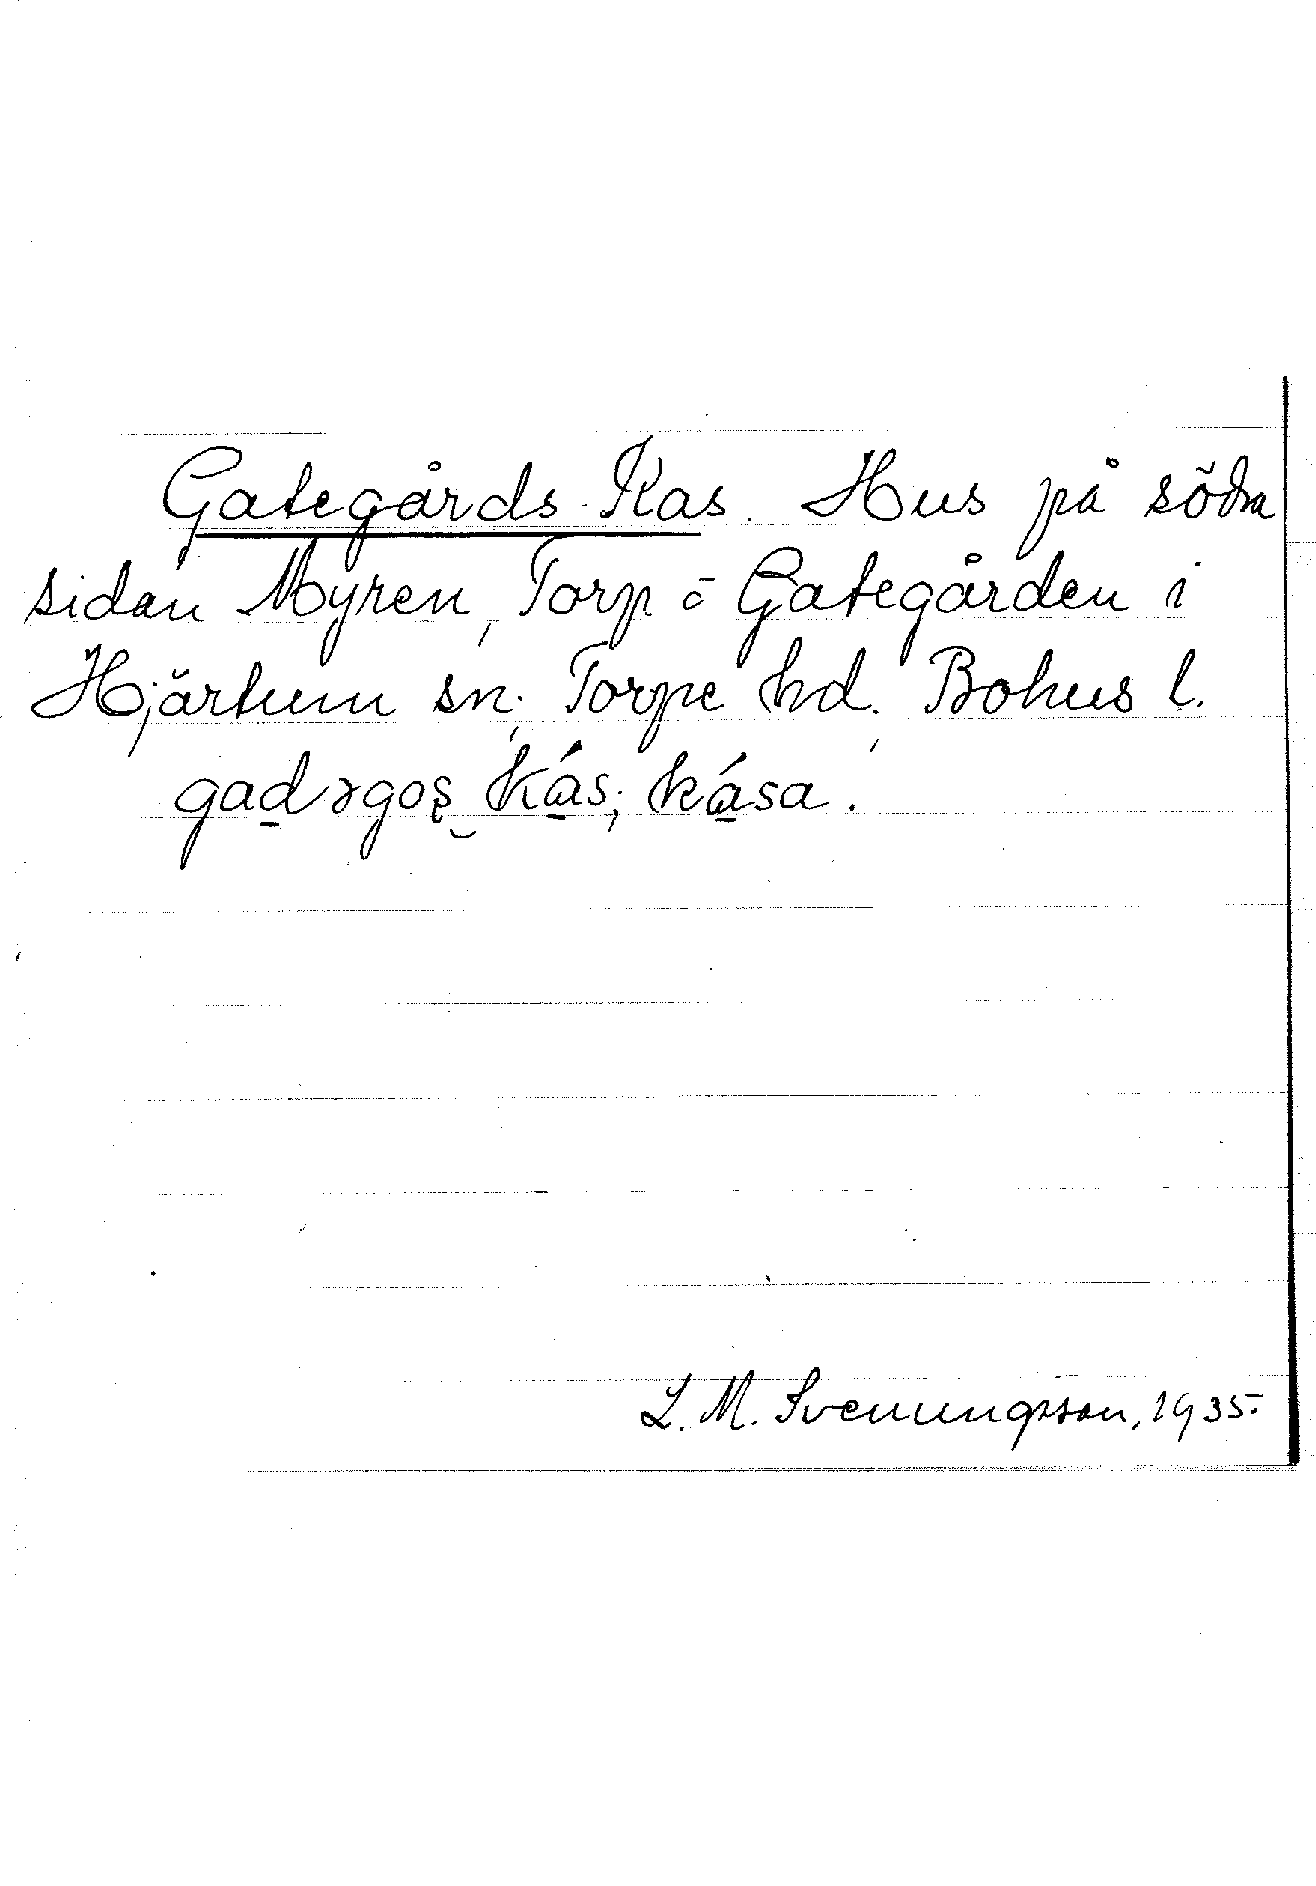 Gategårds-Kas. Hus på södra
sidan Myren, Torp o Gategården i
Hjärtum sn, Torpe hd. Bohus l.
gadəgoş kás; kása.
L. M. Svenungsson, 1935.